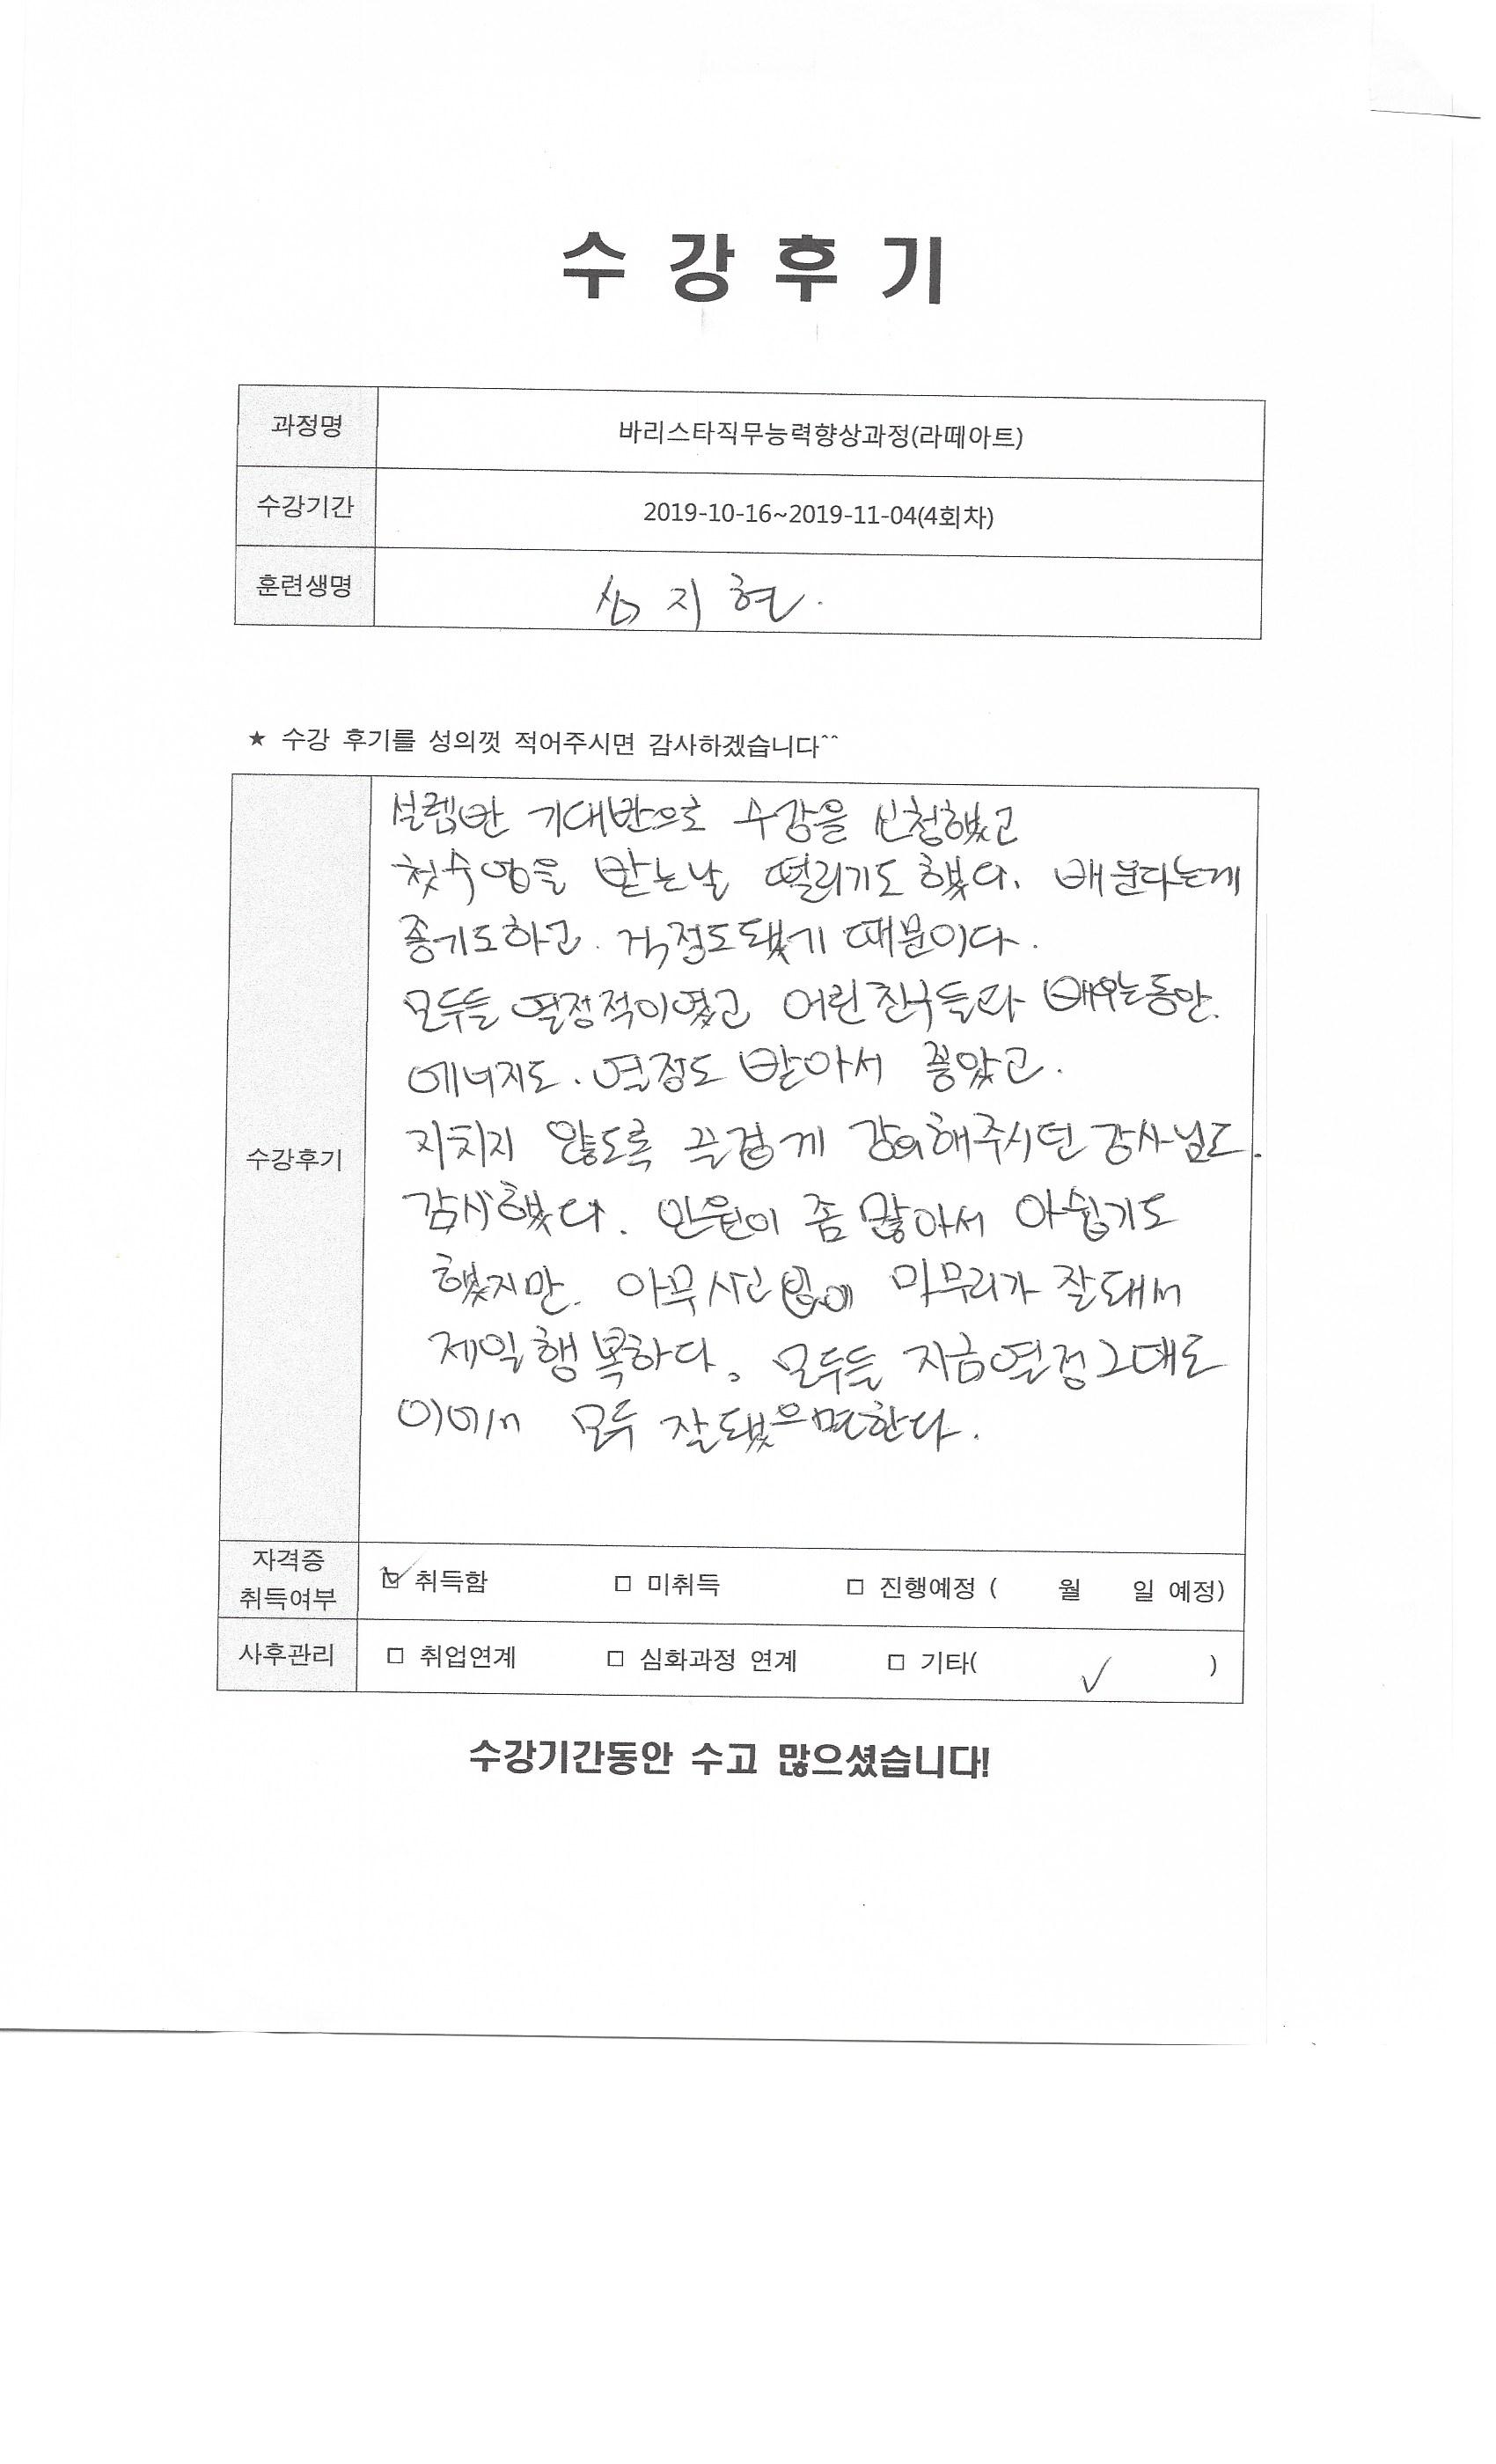 수 강 후 기
과정명 바리스타직무능력향상과정(라떼아트)
수강기간 2019-10-16~2019-11-04(4회차)
훈련생명 심지현.
★ 수강 후기를 성의껏 적어주시면 감사하겠습니다^^
수강후기
설렘반 기대반으로 수강을 신청했고
첫수업을 받는날 떨리기도 했다. 배운다는게
좋기도하고. 걱정도됐기 때문이다.
모두들 열정적이였고 어린친구들과 배우는동안.
에너지도. 열정도 받아서 좋았고.
지치지 않도록 즐겁게 강의해주시던 강사님도.
감사했다. 인원이 좀 많아서 아쉽기도
했지만. 아무사고없이 마무리가 잘돼서
제일행복하다. 모두들 지금열정그대로
이어서 모두 잘됐으면한다.
자격증 취득여부 ☑ 취득함 □ 미취득 □ 진행예정 ( 월 일 예정)
사후관리 □ 취업연계 □ 심화과정 연계 □ 기타( ✓ )
수강기간동안 수고 많으셨습니다!